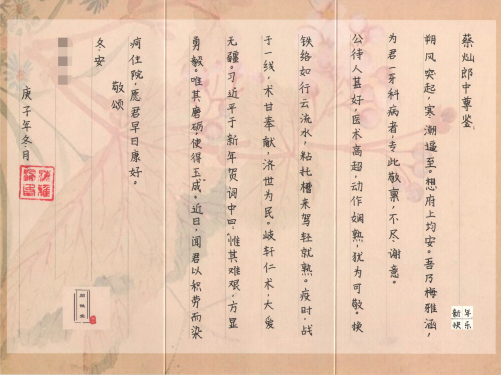 蔡灿郎中尊鉴
朔风突起，寒潮逼至。想府上均安。吾乃梅雅涵，
为君一牙科病者，专此敬禀，不尽谢意。
公待人甚好，医术高超，动作娴熟，犹为可敬。换
铁络如行云流水，粘托槽来驾轻就熟。疫时，战
于一线，术甘奉献，济世为民。岐轩仁术，大爱
无疆。习近平于新年贺词中曰：惟其难艰，方显
勇毅。唯其磨砺，使得玉成。近日，闻君以积劳而染
疴住院，愿君早日康好。
敬颂
冬安
庚子年冬月
新年
快乐